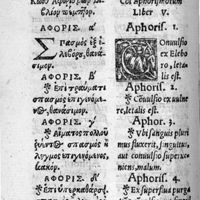 ΑΦΟΡΙΣ. α΄
Σπασμὸς ἐξ ἐλ
λεβόρου, θανά-
σιμον.
ΑΦΟΡΙΣ. β΄
Ἐπὶ τραύματι
σπασμὸς ἐπιγενόμε-
νος, θανάσιμον.
ΑΦΟΡΙΣ. γ΄
αἵματος πολλοῦ
σπασμὸς ἢ
λυγμὸς ἐπιγενόμενος,
κακόν.
ΑΦΟΡΙΣ. δ΄
Ἐπὶ ὑπερκαθάρσει
Aphorismorum
Liber V.
Aphoris. 1.
COnvulsio
ex Elebo
ro, leta-
lis est.
Aphoris. 2.
Cōvulsio ex vulne
re, letalis est.
Aphor. 3.
Vbi sanguis pluri
mus fluxerit, singultus,
aut convulsio superve-
niens, malum.
Aphoris. 4.
Ex supersua purga